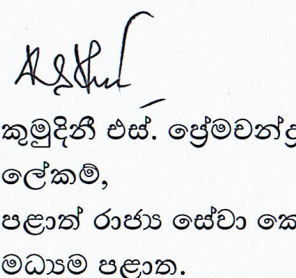 කුමුදිනී එස්. ප්‍රේමචන්ද්‍ර
ලේකම්,
පළාත් රාජ්‍ය සේවා
මධ්‍යම පළාත.